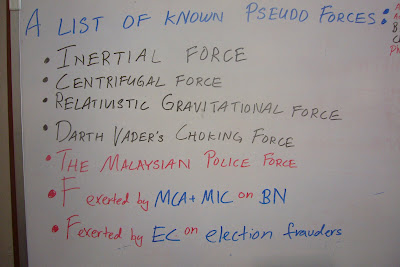 A LIST OF KNOWN PSEUDO FORCES:
• INERTIAL FORCE
• CENTRIFUGAL FORCE
• RELATIVISTIC GRAVITATIONAL FORCE
• DARTH VADER'S CHOKING FORCE
• THE MALAYSIAN POLICE FORCE
• F exerted by MCA + MIC on BN
• F exerted by EC on election frauders